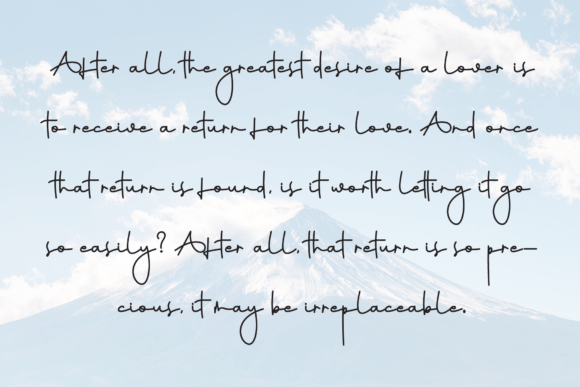 After all, the greatest desire of a lover is
to receive a return for their love. And once
that return is found, is it worth letting it go
so easily? After all, that return is so pre-
cious, it may be irreplaceable.